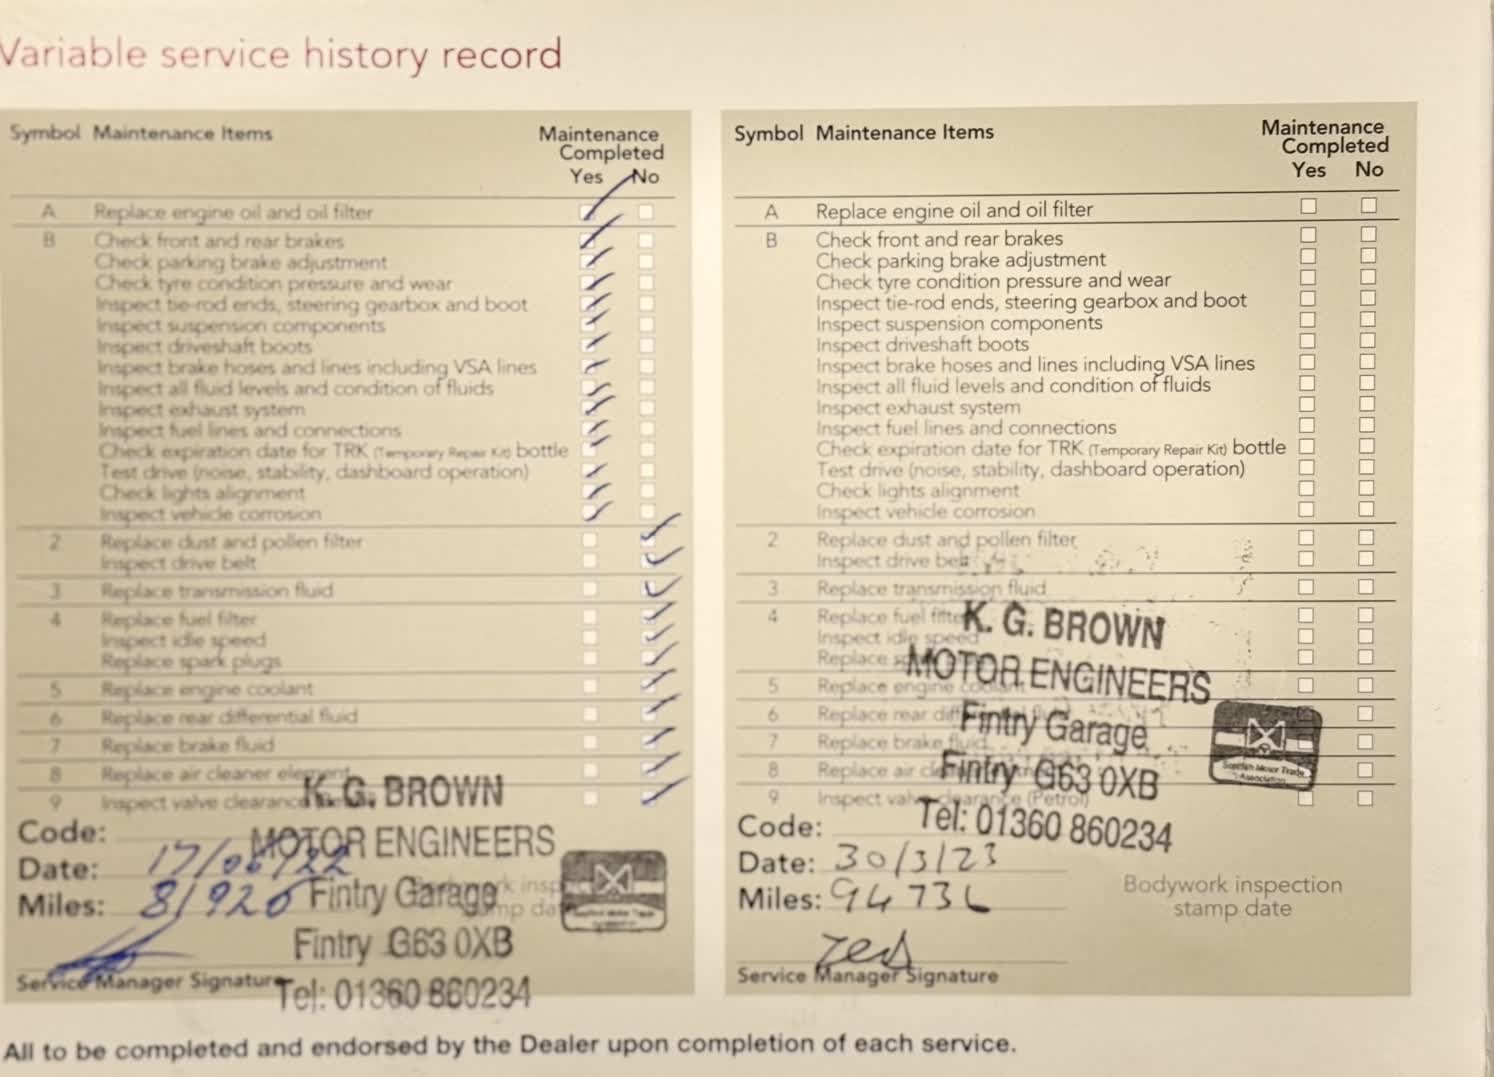 Variable service history record
Symbol Maintenance Items Maintenance Completed
Yes No
A Replace engine oil and oil filter
B Check front and rear brakes
Check parking brake adjustment
Check tyre condition pressure and wear
Inspect tie-rod ends, steering gearbox and boot
Inspect suspension components
Inspect driveshaft boots
Inspect brake hoses and lines including VSA lines
Inspect all fluid levels and condition of fluids
Inspect exhaust system
Inspect fuel lines and connections
Check expiration date for TRK (Temporary Repair Kit) bottle
Test drive (noise, stability, dashboard operation)
Check lights alignment
Inspect vehicle corrosion
2 Replace dust and pollen filter
Inspect drive belt
3 Replace transmission fluid
4 Replace fuel filter
Inspect idle speed
Replace spark plugs
5 Replace engine coolant
6 Replace rear differential fluid
7 Replace brake fluid
8 Replace air cleaner element
9 Inspect valve clearance
Code:
Date: 17/06/22
Miles: 81926
Service Manager Signature
K. G. BROWN
MOTOR ENGINEERS
Fintry Garage
Fintry G63 0XB
Tel: 01360 860234
Symbol Maintenance Items Maintenance Completed
Yes No
A Replace engine oil and oil filter
B Check front and rear brakes
Check parking brake adjustment
Check tyre condition pressure and wear
Inspect tie-rod ends, steering gearbox and boot
Inspect suspension components
Inspect driveshaft boots
Inspect brake hoses and lines including VSA lines
Inspect all fluid levels and condition of fluids
Inspect exhaust system
Inspect fuel lines and connections
Check expiration date for TRK (Temporary Repair Kit) bottle
Test drive (noise, stability, dashboard operation)
Check lights alignment
Inspect vehicle corrosion
2 Replace dust and pollen filter
Inspect drive belt
3 Replace transmission fluid
4 Replace fuel filter
Inspect idle speed
Replace
5 Replace engine coolant
6 Replace rear
7 Replace brake fluid
8 Replace air
9 Inspect valve clearance (Petrol)
K. G. BROWN
MOTOR ENGINEERS
Fintry Garage
Fintry G63 0XB
Tel: 01360 860234
Scottish Motor Trade
Association
Code:
Date: 30/3/23
Miles: 94736
Bodywork inspection
stamp date
Service Manager Signature
All to be completed and endorsed by the Dealer upon completion of each service.